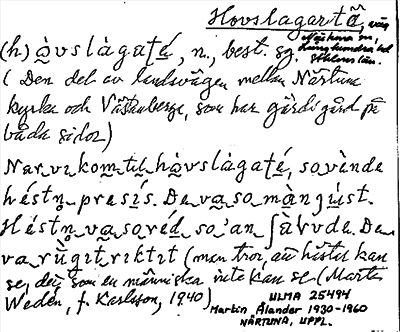 Hovslagartå,
Närtuna sn,
Långhundra hd
Sthlms län.
(h)àvslàgaté, n., best. sg.
(Den del av landsvägen mellan Närtuna
kyrka och Västanberga, som har gärdsgård på
båda sidor)
Nar vi kom til hàvslàgaté, so vànde
hést̥n̥ presís. De va so màngúst.
Hést̥n̥ va so réd so 'an ʃàlvde. De
va rùgtriktit (man tror, att hästen kan
se, det som en människa inte kan se (Marta
Wedén, f. Karlsson, 1940)
ULMA 25494
Martin Ålander 1930-1960
NÄRTUNA, UPPL.